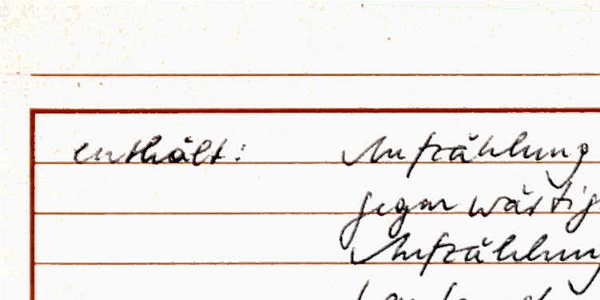 enthält: Aufzählung
gegenwärtig
Aufzählung